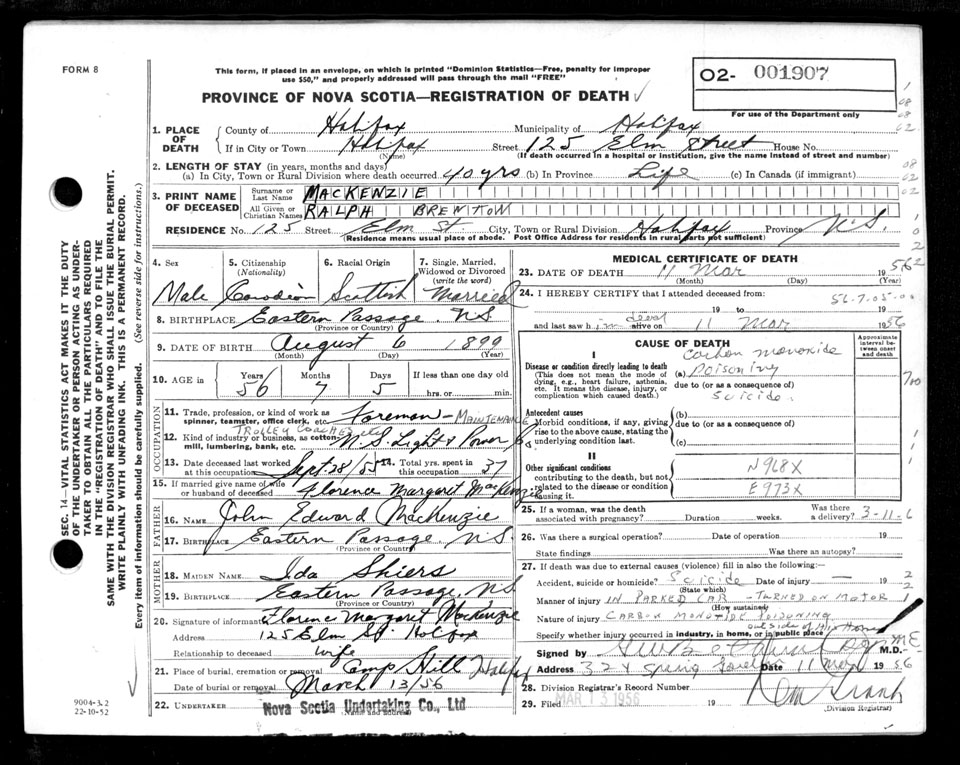 FORM 8
This form, if placed in an envelope, on which is printed "Dominion Statistics—Free, penalty for improper
use $50," and properly addressed will pass through the mail "FREE"
PROVINCE OF NOVA SCOTIA—REGISTRATION OF DEATH
02- 001907
For use of the Department only
1. PLACE OF DEATH
County of Halifax Municipality of Halifax
If in City or Town Halifax Street 125 Elm Street House No.
(Name) (If death occurred in a hospital or institution, give the name instead of street and number)
2. LENGTH OF STAY (in years, months and days)
(a) In City, Town or Rural Division where death occurred 40 yrs (b) In Province Life (c) In Canada (if immigrant)
3. PRINT NAME OF DECEASED
Surname or Last Name MACKENZIE
All Given or Christian Names RALPH BRENTON
RESIDENCE No. 125 Street Elm St. City, Town or Rural Division Halifax Province N.S.
(Residence means usual place of abode. Post Office Address for residents in rural parts not sufficient)
4. Sex Male
5. Citizenship (Nationality) Canadian
6. Racial Origin Scottish
7. Single, Married, Widowed or Divorced (write the word) Married
8. BIRTHPLACE Eastern Passage. N.S.
(Province or Country)
9. DATE OF BIRTH August 6 1899
(Month) (Day) (Year)
10. AGE in Years 56 Months 7 Days 5 If less than one day old
hrs. or min.
OCCUPATION
11. Trade, profession, or kind of work as spinner, teamster, office clerk, etc. Foreman - MAINTENANCE
TROLLEY COACHES etc
12. Kind of industry or business, as cotton mill, lumbering, bank, etc. N.S. Light & Power Co
13. Date deceased last worked at this occupation Sept 28/55
14. Total yrs. spent in this occupation 37
15. If married give name of wife or husband of deceased Florence Margaret MacKenzie
FATHER
16. NAME John Edward MacKenzie
17. BIRTHPLACE Eastern Passage. N.S.
(Province or Country)
MOTHER
18. MAIDEN NAME Ida Shiers
19. BIRTHPLACE Eastern Passage, N.S
(Province or Country)
20. Signature of informant Florence Margaret MacKenzie
Address 125 Elm St. Halifax
Relationship to deceased wife
21. Place of burial, cremation or removal Camp Hill Halifax
Date of burial or removal March 13/56
22. UNDERTAKER Nova Scotia Undertaking Co., Ltd
(Name and address)
MEDICAL CERTIFICATE OF DEATH
23. DATE OF DEATH 11 Mar 1956
(Month) (Day) (Year)
24. I HEREBY CERTIFY that I attended deceased from
19 to 19
and last saw him dead alive on 11 Mar 1956
CAUSE OF DEATH
Approximate interval between onset and death
I
Disease or condition directly leading to death
(This does not mean the mode of dying, e.g., heart failure, asthenia, etc. It means the disease, injury, or complication which caused death.)
(a) Carbon monoxide Poisoning
due to (or as a consequence of)
Suicide.
Antecedent causes
Morbid conditions, if any, giving rise to the above cause, stating the underlying condition last.
(b)
due to (or as a consequence of)
(c)
II
Other significant conditions
contributing to the death, but not related to the disease or condition causing it.
N968X
E973X
25. If a woman, was the death associated with pregnancy? Duration weeks. Was there a delivery? 3-11-6
26. Was there a surgical operation? Date of operation 19
State findings Was there an autopsy?
27. If death was due to external causes (violence) fill in also the following:—
Accident, suicide or homicide? Suicide Date of injury — 19
(State which)
Manner of injury IN PARKED CAR - TURNED ON MOTOR
(How sustained)
Nature of injury CARBON MONOXIDE POISONING
outside of His Home
Specify whether injury occurred in industry, in home, or in public place
Signed by M.D. ME
Address Spring Date 11 Mar 1956
28. Division Registrar's Record Number
29. Filed MAR 13 1956 19
(Division Registrar)
SEC. 14—VITAL STATISTICS ACT MAKES IT THE DUTY
OF THE UNDERTAKER OR PERSON ACTING AS UNDER-
TAKER TO OBTAIN ALL THE PARTICULARS REQUIRED
IN THE "REGISTRATION OF DEATH" AND TO FILE THE
SAME WITH THE DIVISION REGISTRAR WHO SHALL ISSUE THE BURIAL PERMIT.
WRITE PLAINLY WITH UNFADING INK. THIS IS A PERMANENT RECORD.
Every item of information should be carefully supplied. (See reverse side for instructions.)
9004-3.2
22-10-52